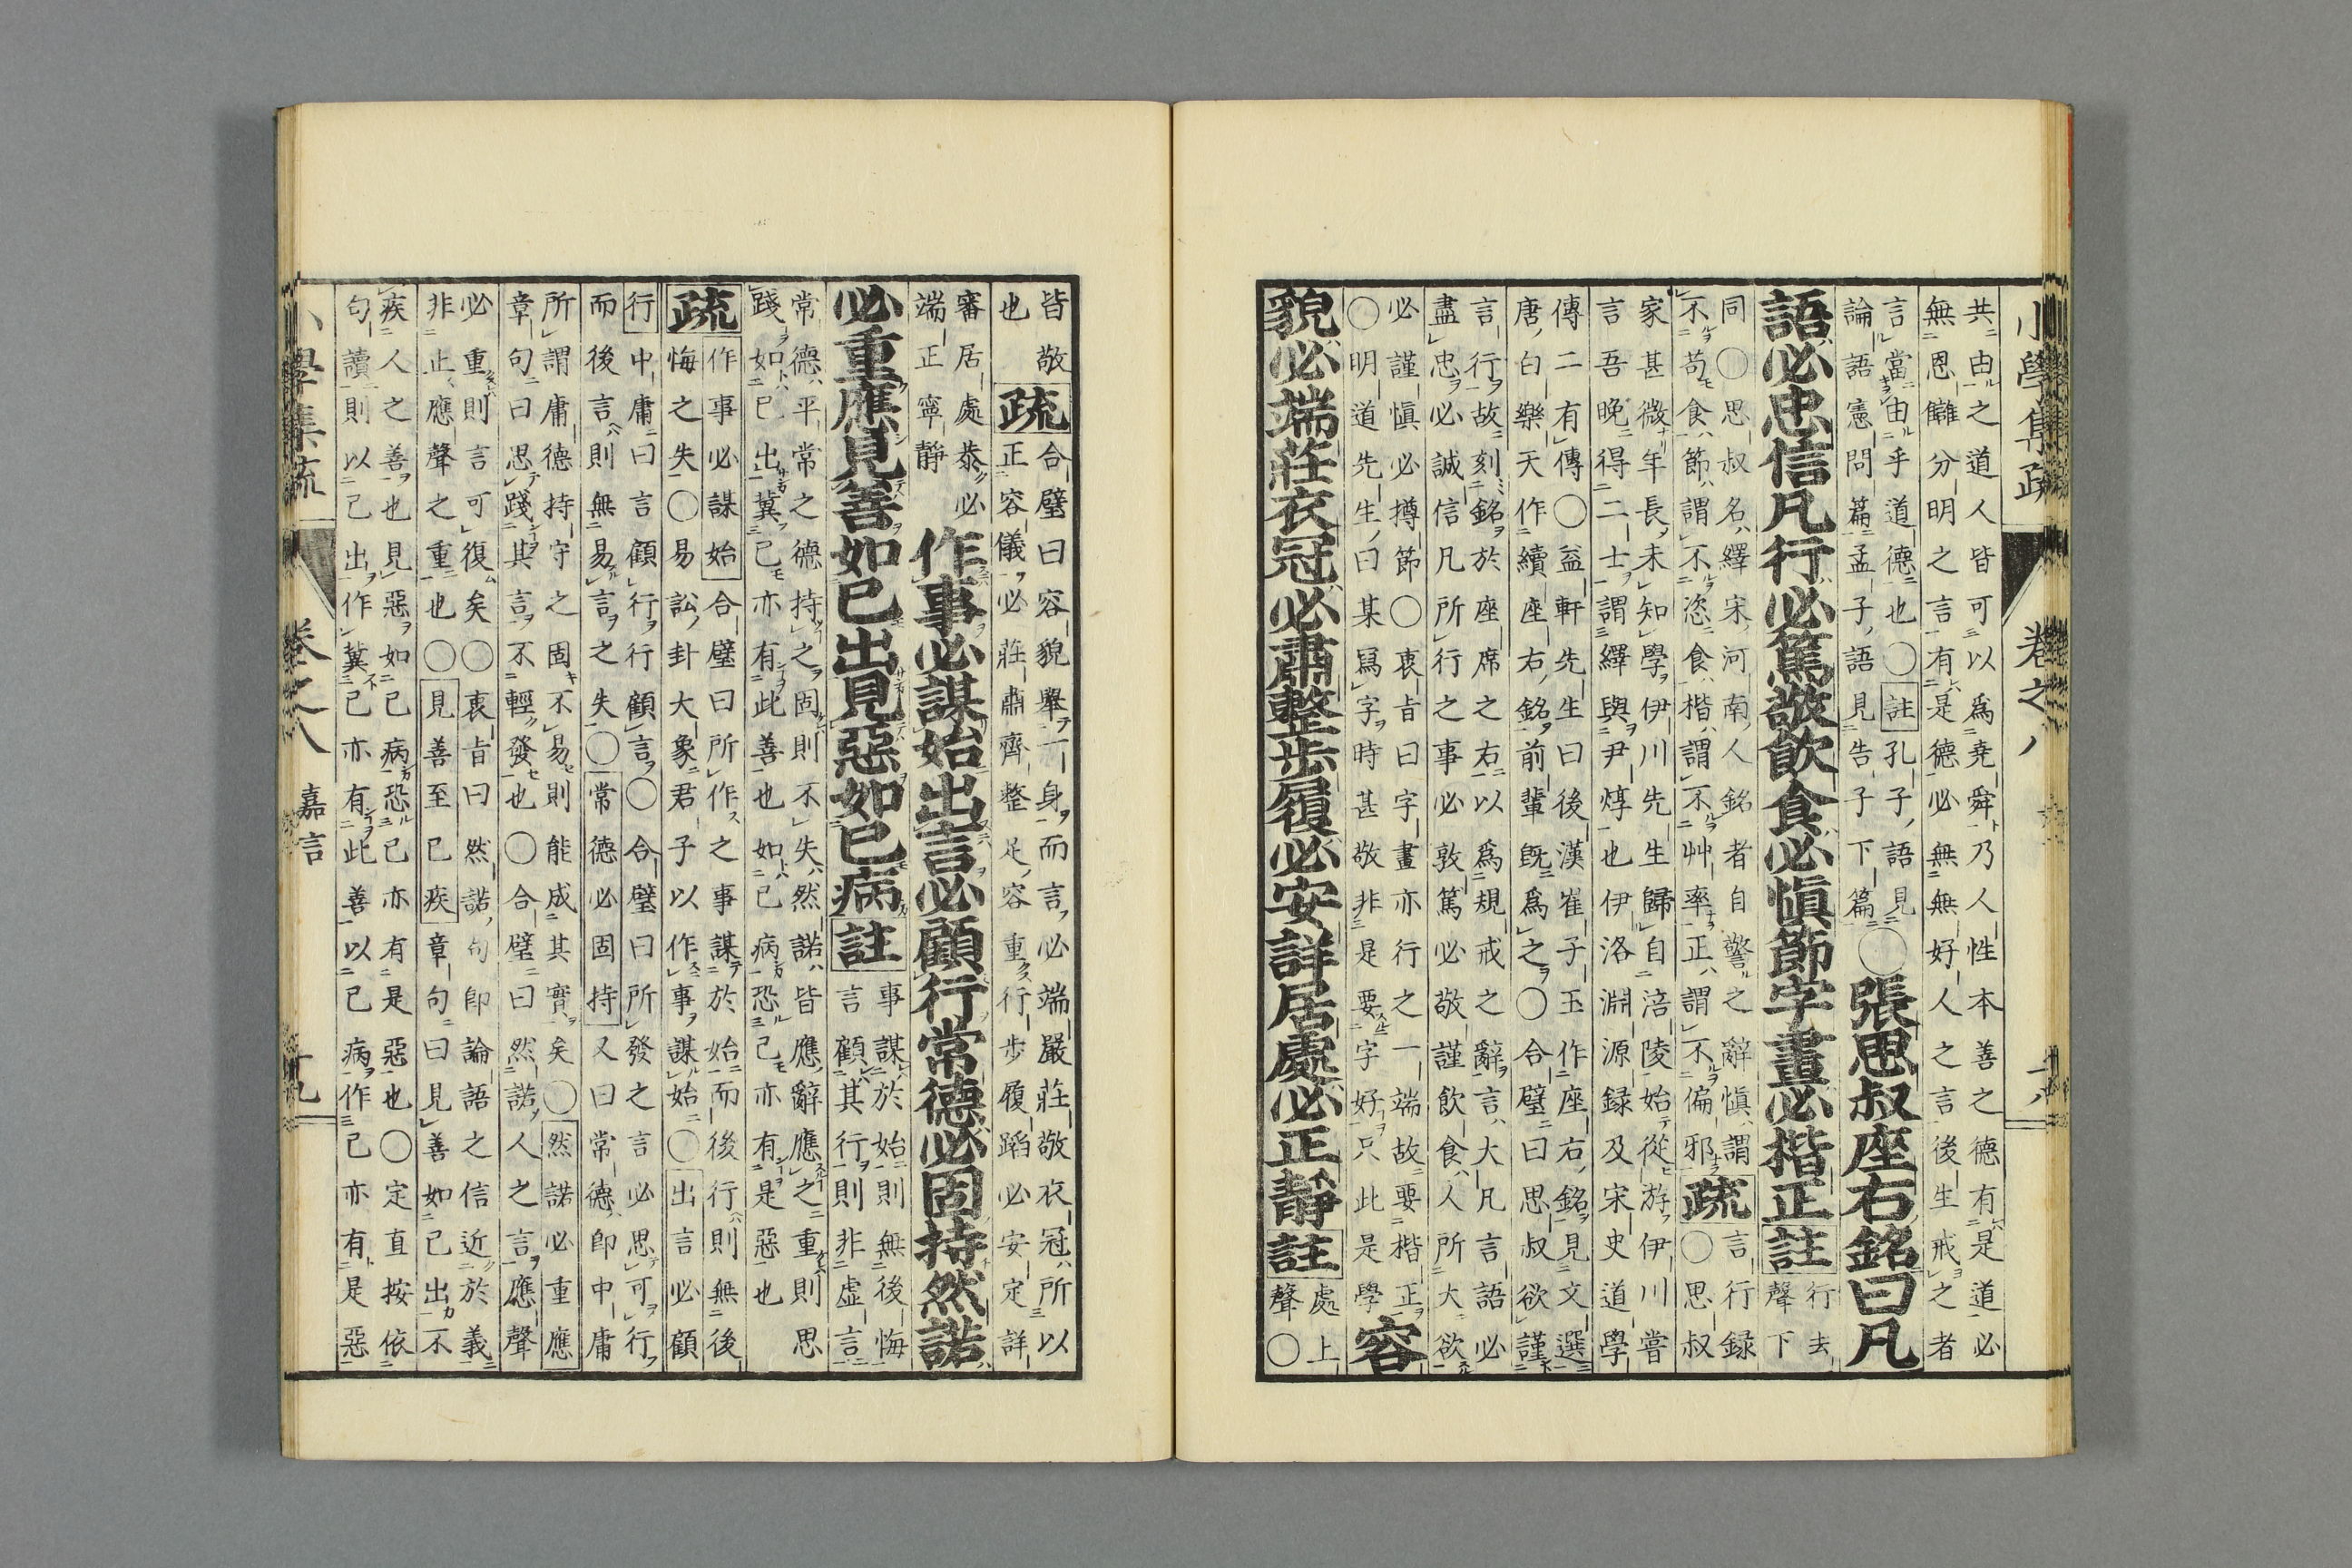 小學集疏 卷之八
共由之道人皆可以爲堯舜乃人性本善之德有是道必
無恩讎分明之言有是德必無無好人之言後生戒之者
言當由乎道德也○註孔子語見
論語憲問篇孟子語見告子下篇
○張思叔座右銘曰凡
語必忠信凡行必篤敬飲食必愼節字畫必楷正註
行去
聲下
同○思叔名繹宋河南人銘者自警之辭愼謂
不苟食節謂不恣食楷謂不艸率正謂不偏邪
疏
言行録
○思叔
家甚微年長未知學伊川先生歸自涪陵始從游伊川嘗
言吾晚得二士謂繹與尹焞也伊洛淵源録及宋史道學
傳二有傳○益軒先生曰後漢崔子玉作座右銘見文選
唐白樂天作續座右銘前輩既爲之○合璧曰思叔欲謹
言行故刻銘於座席之右以爲規戒之辭言大凡言語必
盡忠必誠信凡所行之事必敦篤必敬謹飲食人所大欲
必謹愼必撙節○衷旨曰字畫亦行之一端故要楷正
○明道先生曰某寫字時甚敬非是要字好只此是學
容
貌必端莊衣冠必肅整步履必安詳居處必正靜註
處上
聲○
皆敬
也
疏
合璧曰容貌舉一身而言必端嚴莊敬衣冠所以
正容儀必莊肅齊整足容重行步履蹈必安定詳
審居處恭必
端正寧靜
作事必謀始出言必顧行常德必固持然諾
必重應見善如已出見惡如已病註
事謀於始則無後悔
言顧其行則非虛言
常德平常之德持之固則不失然諾皆應辭應之重則思
踐如已出冀已亦有此善也如已病恐已亦有是惡也
疏
作事必謀始合璧曰所作之事謀於始而後行則無後
悔之失○易訟卦大象君子以作事謀始○出言必顧
行中庸曰言顧行行顧言○合璧曰所發之言必思可行
而後言則無易言之失○常德必固持又曰常德即中庸
所謂庸德持守之固不易則能成其實矣○然諾必重應
章句曰思踐其言不輕發也○合璧曰然諾人之言應聲
必重則言可復矣○衷旨曰然諾句即論語之信近於義
非止應聲之重也○見善至已疾章句曰見善如已出不
疾人之善也見惡如已病恐已亦有是惡也○定直按依
句讀則以已出作冀已亦有此善以已病作已亦有是惡
學集疏 卷之八 嘉言 十九